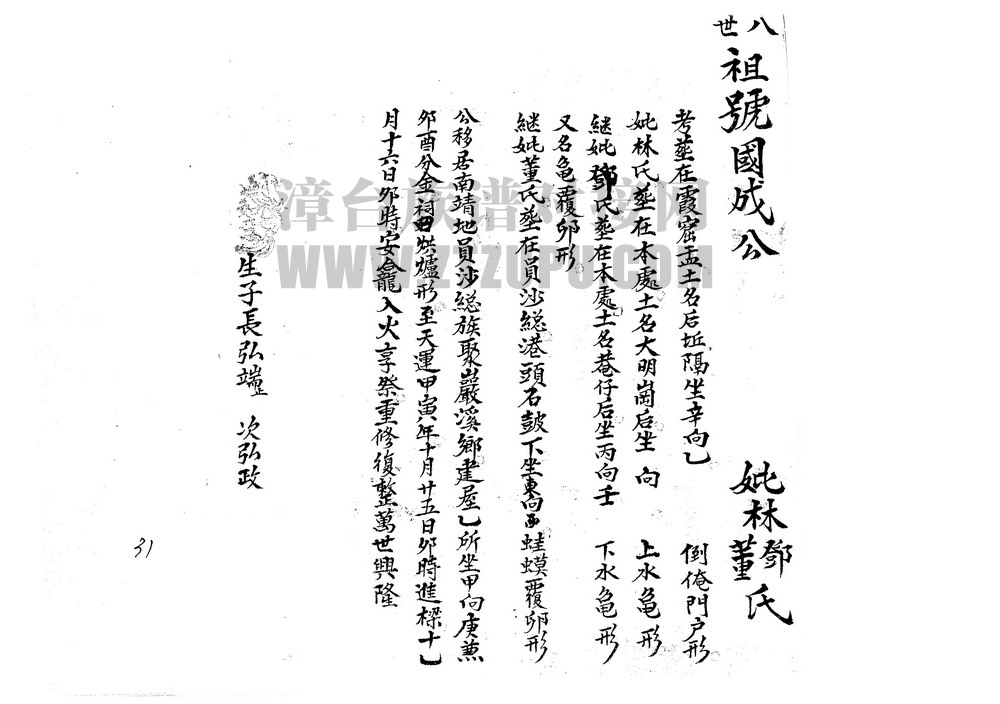 八世
祖號國成公 妣林鄧董氏
考塟在霞窟盂土名后坵隔坐辛向乙 倒俺門户形
妣林氏塟在本處土名大明崗后坐 向 上水亀形
継妣鄧氏塟在本處土名菴仔后坐丙向壬 下水亀形
又名亀覆卵形
継妣董氏塟在員沙総港頭石皷下坐東向西蛙蟆覆卵形
公移居南靖地員沙総族聚巖溪鄉建屋乙所坐甲向庚兼
夘酉分金祠曰烘爐形至天運甲寅年十月廿五日夘時進樑十乙
月十六日夘時安龕入火享祭重修復整萬世興隆
生子長弘端 次弘政
31
漳台族谱对接网
WWW.ZTZUPU.COM